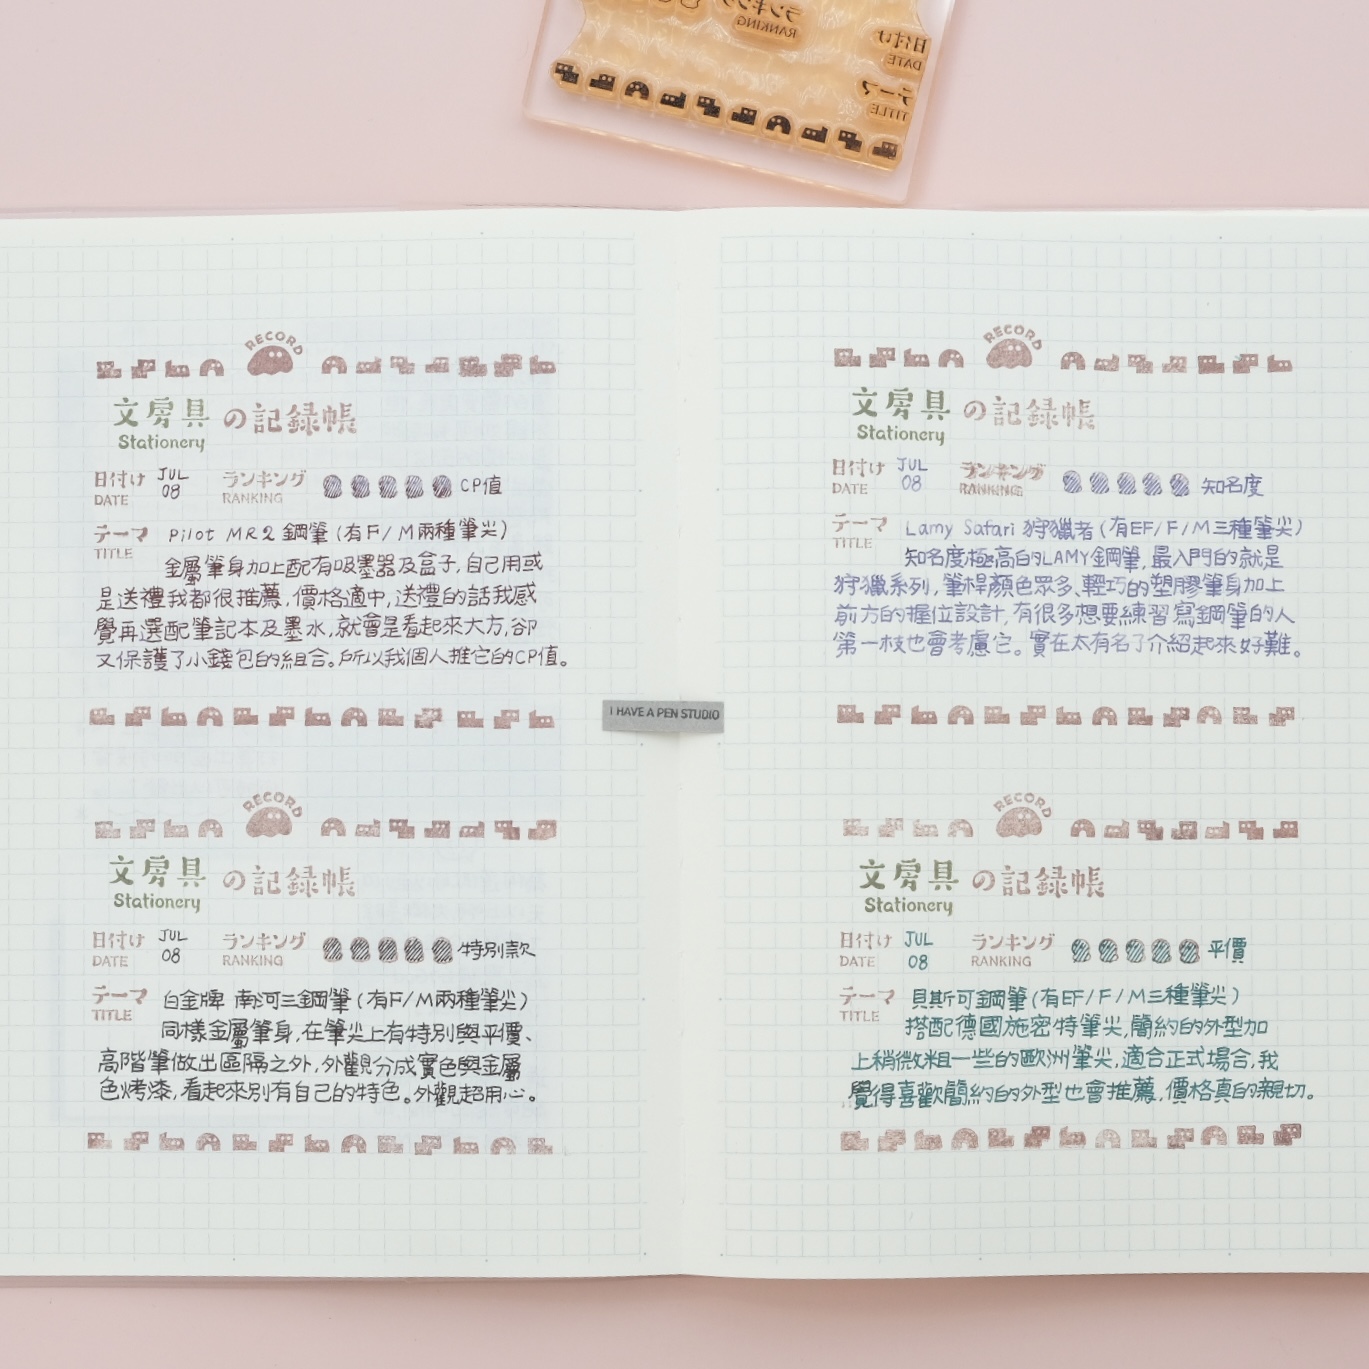 ランキング
RANKING
日付け
DATE
テーマ
TITLE
RECORD
文房具 の記録帳
Stationery
日付け JUL ランキング CP值
DATE 08 RANKING
テーマ Pilot MR2 鋼筆 (有F/M兩種筆尖)
TITLE
金屬筆身加上配有吸墨器及盒子,自己用或
是送禮我都很推薦,價格適中,送禮的話我感
覺再選配筆記本及墨水,就會是看起來大方,卻
又保護了小錢包的組合。所以我個人推它的CP值。
RECORD
文房具 の記録帳
Stationery
日付け JUL ランキング 特別款
DATE 08 RANKING
テーマ 白金牌 南河三鋼筆 (有F/M兩種筆尖)
TITLE
同樣金屬筆身,在筆尖上有特別與平價、
高階筆做出區隔之外,外觀分成實色與金屬
色烤漆,看起來別有自己的特色。外觀超用心。
I HAVE A PEN STUDIO
RECORD
文房具 の記録帳
Stationery
日付け JUL ランキング 知名度
DATE 08 RANKING
テーマ Lamy Safari 狩獵者 (有EF/F/M三種筆尖)
TITLE
知名度極高的LAMY鋼筆,最入門的就是
狩獵系列,筆桿顏色眾多、輕巧的塑膠筆身加上
前方的握位設計,有很多想要練習寫鋼筆的人
第一枝也會考慮它。實在太有名了介紹起來好難。
RECORD
文房具 の記録帳
Stationery
日付け JUL ランキング 平價
DATE 08 RANKING
テーマ 貝斯可鋼筆 (有EF/F/M三種筆尖)
TITLE
搭配德國施密特筆尖,簡約的外型加
上稍微粗一些的歐洲筆尖,適合正式場合,我
覺得喜歡簡約的外型也會推薦,價格真的親切。